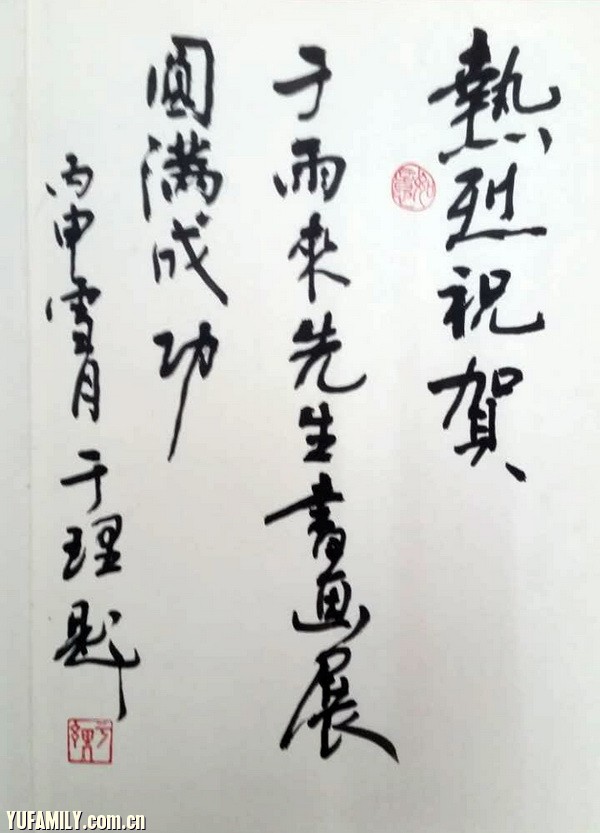 熱烈祝賀
于雨來先生書画展
圓滿成功
丙申雪月于理題
YUFAMILY.com.cn